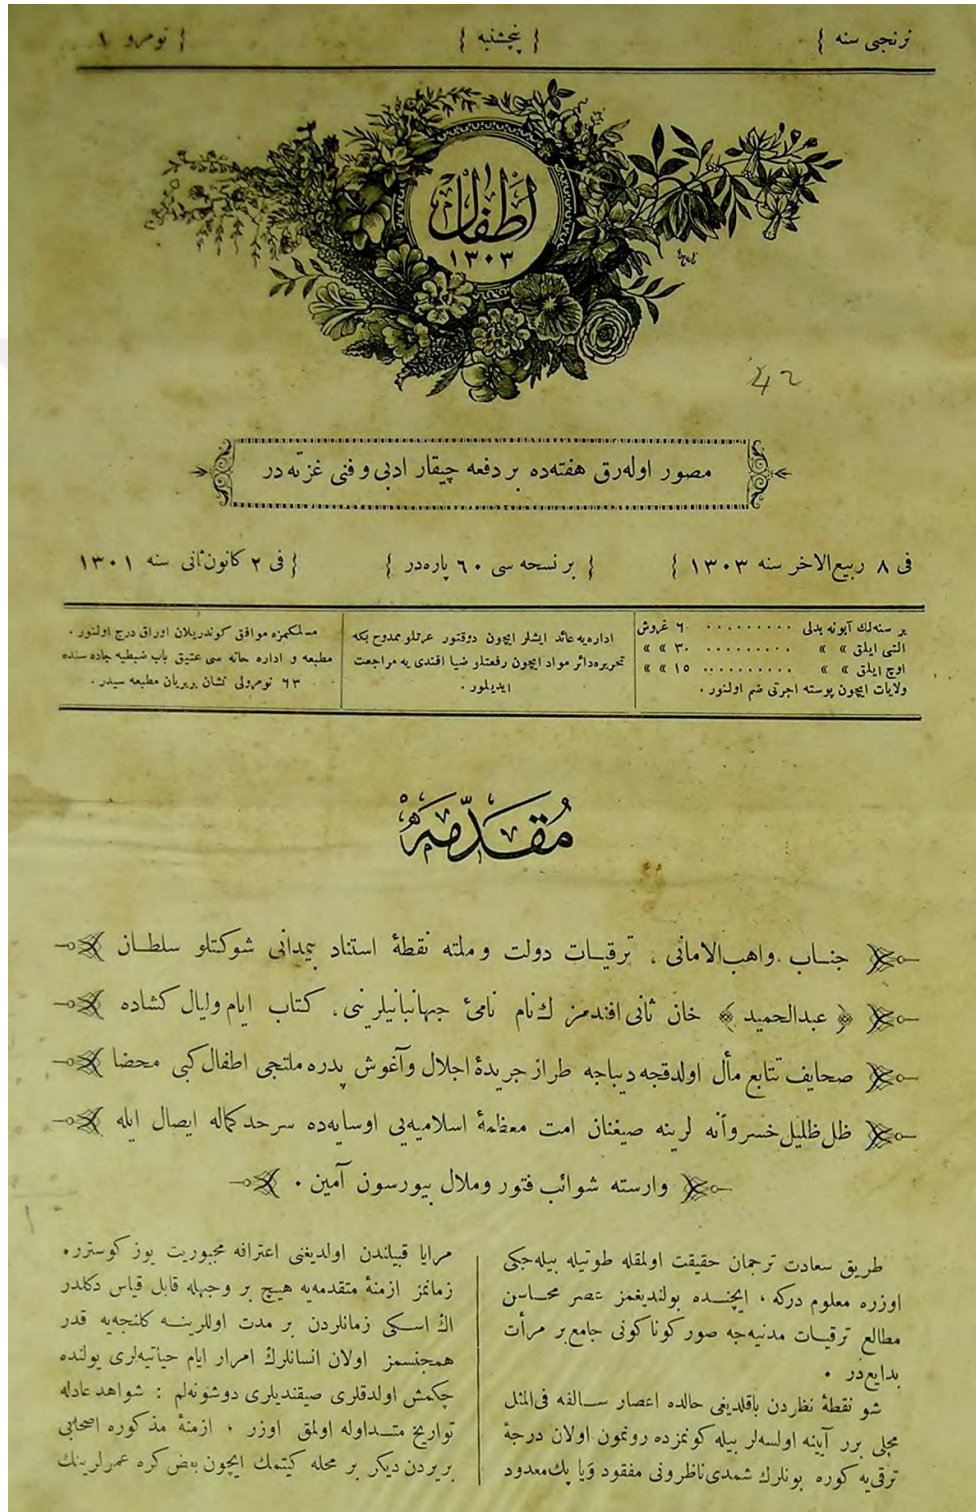 برنجی سنه { } پنجشنبه { } نومرو ١
اطفال
١٣٠٣
مصور اوله‌رق هفته‌ده بر دفعه چیقار ادبی و فنی غزته‌در
فی ٨ ربیع‌الاخر سنه ١٣٠٣ { } بر نسخه سی ٦٠ پاره‌در { } فی ٢ کانون ثانی سنه ١٣٠١
بر سنه‌لك آبونه بدلی ......... ٦٠ غروش
التی ایلق » » ......... ٣٠ » »
اوچ ایلق » » ......... ١٥ » »
ولایات ایچون پوسته اجرتی ضم اولنور .
اداره‌یه عائد ایشلر ایچون دوقتور عزتلو ممدوح بکه
تحریره‌دائر مواد ایچون رفعتلو ضیا افندی یه مراجعت
ایدیلور .
مسلکمزه موافق کوندریلان اوراق درج اولنور .
مطبعه و اداره خانه سی عتیق باب ضبطیه جاده سنده
٦٣ نومرولی نشان بربریان مطبعه سیدر .
مُقدّمه
جناب واهب‌الامانی ، ترقیات دولت و ملته نقطهٔ استناد بیمدانی شوکتلو سلطان
﴿ عبدالحمید ﴾ خان ثانی افندمز ك نام نامئ جهانبانیلرینی ، کتاب ایام ولیال کشاده
صحایف تتابع مأل اولدقجه دیباجه طراز جریدهٔ اجلال وآغوش پدره ملتجی اطفال کبی محضا
ظل ظلیل خسروانه لرینه صیغنان امت معظمهٔ اسلامیه‌یی اوسایه‌ده سرحد کماله ایصال ایله
وارسته شوائب فتور وملال بیورسون آمین .
طریق سعادت ترجمان حقیقت اولمقله طوتیله بیله‌جکی
اوزره معلوم درکه ، ایچنده بولندیغمز عصر محاسن
مطالع ترقیات مدنیه‌جه صور کوناکونی جامع بر مرأت
بدایع‌در .
شو نقطهٔ نظردن باقلدیغی حالده اعصار سالفه فی‌المثل
مجلی برر آیینه اولسه‌لر بیله کونمزده رونمون اولان درجهٔ
ترقی‌یه کوره بونلرك شمدی ناظرونی مفقود ویا پك معدود
مرایا قبیلندن اولدیغنی اعترافه مجبوریت یوز کوسترر.
زمانمز ازمنهٔ متقدمه‌یه هیچ بر وجهله قابل قیاس دکلدر
اڭ اسکی زمانلردن بر مدت اوللرینه کلنجه‌یه قدر
همجنسمز اولان انسانلرك امرار ایام حیاتیه‌لری یولنده
چکمش اولدقلری صیقندیلری دوشونه‌لم : شواهد عادله
تواریخ متداوله اولمق اوزر ، ازمنهٔ مذکوره اصحابی
بریردن دیکر بر محله کیتمك ایچون بعض کره عمرلرینك